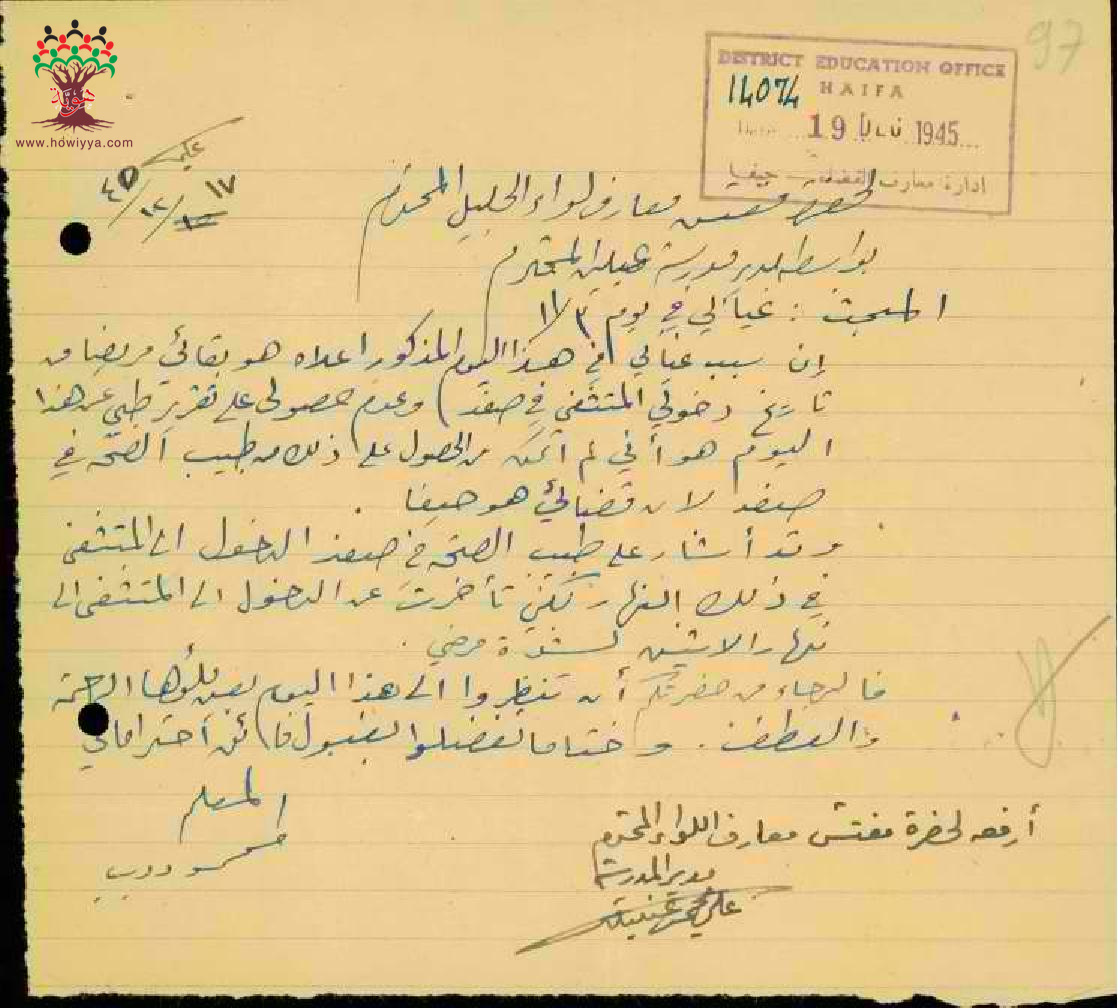 97
DISTRICT EDUCATION OFFICE
HAIFA
14074
Date 19 DEC 1945
ادارة معارف القضاء حيفا
www.howiyya.com
١٧/١٢/٤٥
لحضرة مفتش معارف لواء الجليل المحترم
بواسطة مدير مدرسة عبلين المحترم
المبحث : غيابي في يوم
إن سبب غيابي في هذا اليوم المذكور اعلاه هو بقائي مريضا من
تاريخ دخولي المستشفى في صفد) وعدم حصولي على تقرير طبي عن هذا
اليوم هو أني لم أتمكن من الحصول على ذلك من طبيب الصحة في
صفد لان قضائي هو حيفا .
وقد أشار علي طبيب الصحة في صفد الدخول الى المستشفى
في ذلك النهار لكنني تأخرت عن الدخول الى المستشفى الى
نهار الاثنين لشدة مرضي .
فالرجاء من حضرتكم أن تنظروا الى هذا اليوم بعين ملؤها الرحمة
والعطف . وختاما تفضلوا بقبول فائق احتراماتي
المعلم
أرفعه لحضرة مفتش معارف اللواء المحترم
مدير المدرسة
علي